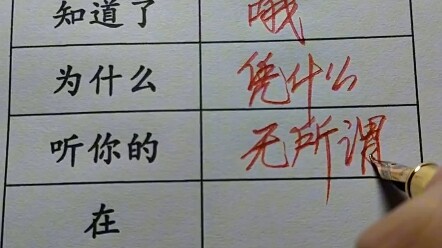 知道了 哦
为什么 凭什么
听你的 无所谓
在